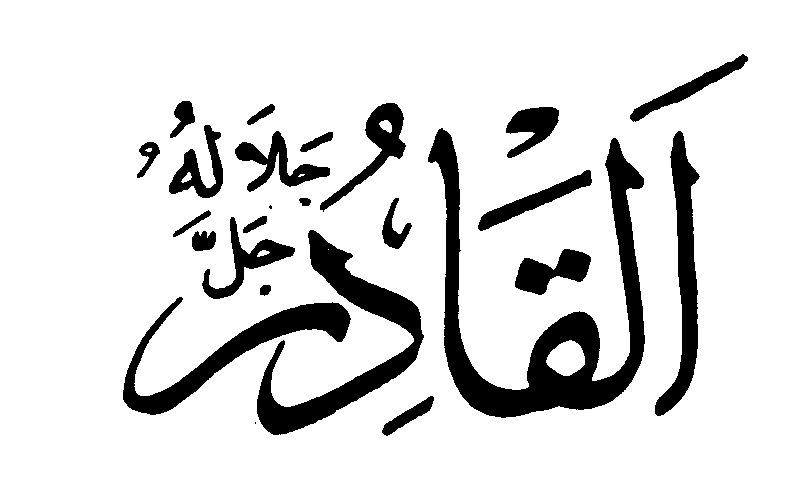 اَلْقَادِرُ
جَلَّ
جَلَالَهُ